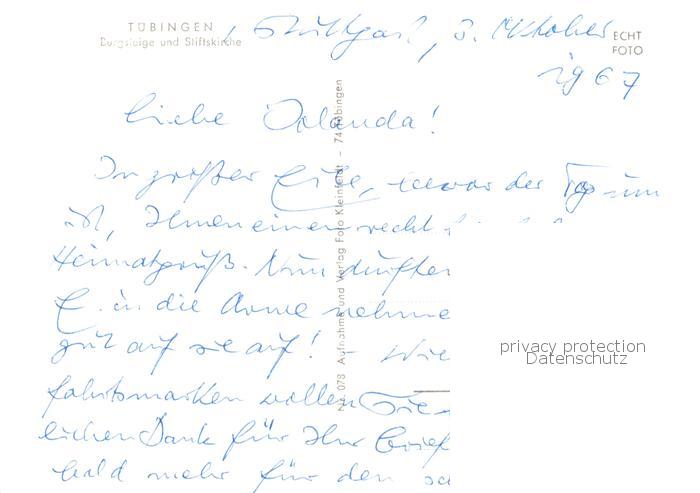 TÜBINGEN
Burgsteige und Stiftskirche
ECHT
FOTO
Stuttgart, 3. Oktober
1967
Liebe Jolanda!
In größter Eile, bevor der Tag um
ist, Ihnen einen recht
Heimatgruß. Nun dürfte
E. in die Arme nehme
gut auf sie auf! – Wie
fahrtsmarken wollen Sie
lichen Dank für Ihr Brief
bald mehr für den
Nr. 078 Aufnahme und Verlag Foto Kleinfeldt – 74 Tübingen
privacy protection
Datenschutz